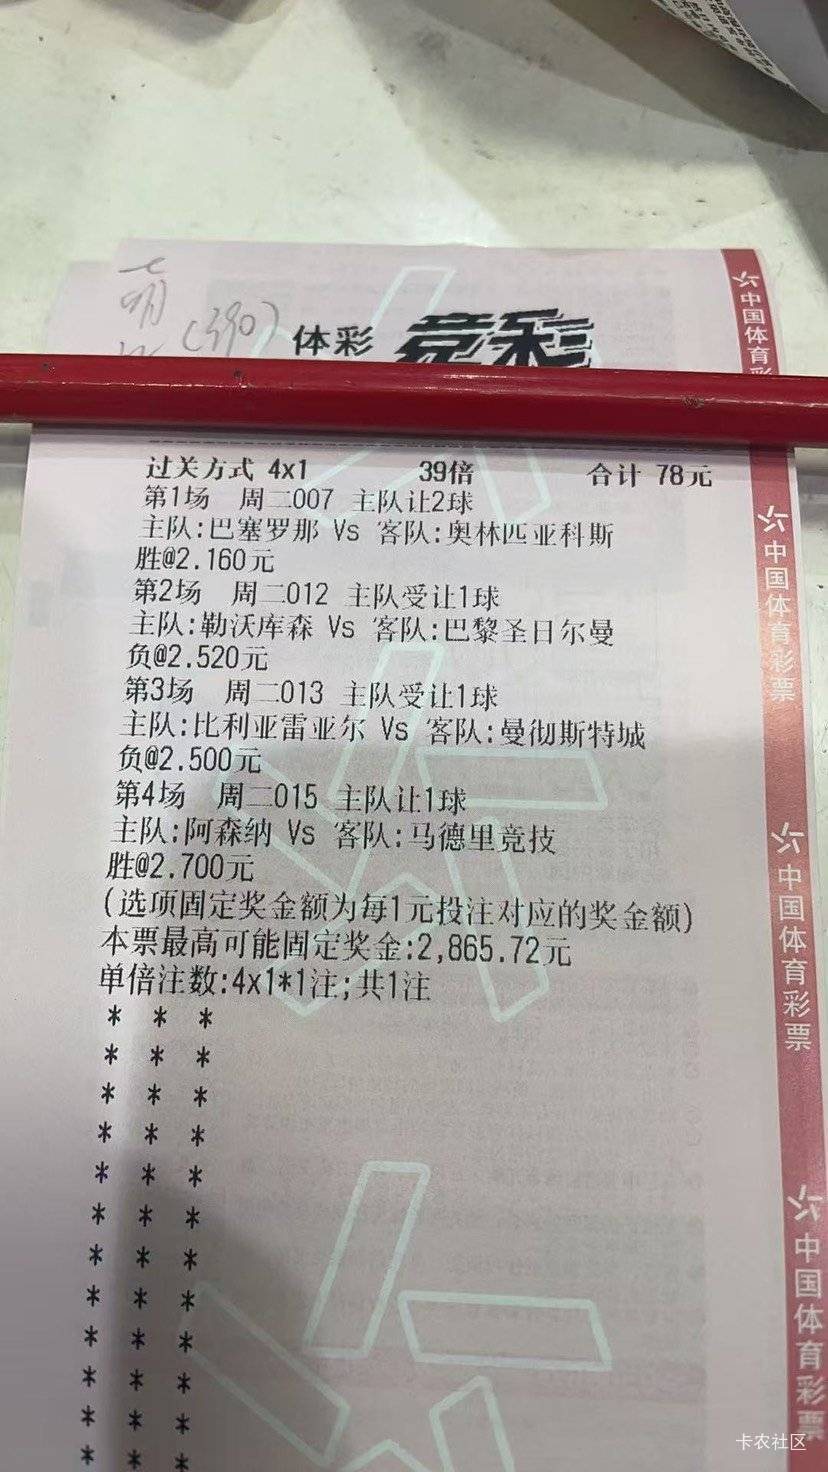 (390)
体彩 竞彩
过关方式 4x1 39倍 合计 78元
第1场 周二007 主队让2球
主队:巴塞罗那 Vs 客队:奥林匹亚科斯
胜@2.160元
第2场 周二012 主队受让1球
主队:勒沃库森 Vs 客队:巴黎圣日尔曼
负@2.520元
第3场 周二013 主队受让1球
主队:比利亚雷亚尔 Vs 客队:曼彻斯特城
负@2.500元
第4场 周二015 主队让1球
主队:阿森纳 Vs 客队:马德里竞技
胜@2.700元
(选项固定奖金额为每1元投注对应的奖金额)
本票最高可能固定奖金:2,865.72元
单倍注数:4x1*1注;共1注
* * *
* * *
* * *
* * *
* * *
* * *
* * *
* * *
* * *
* * *
* * *
* * *
中国体育彩
中国体育彩票
中国体育彩票
中国体育彩票
卡农社区